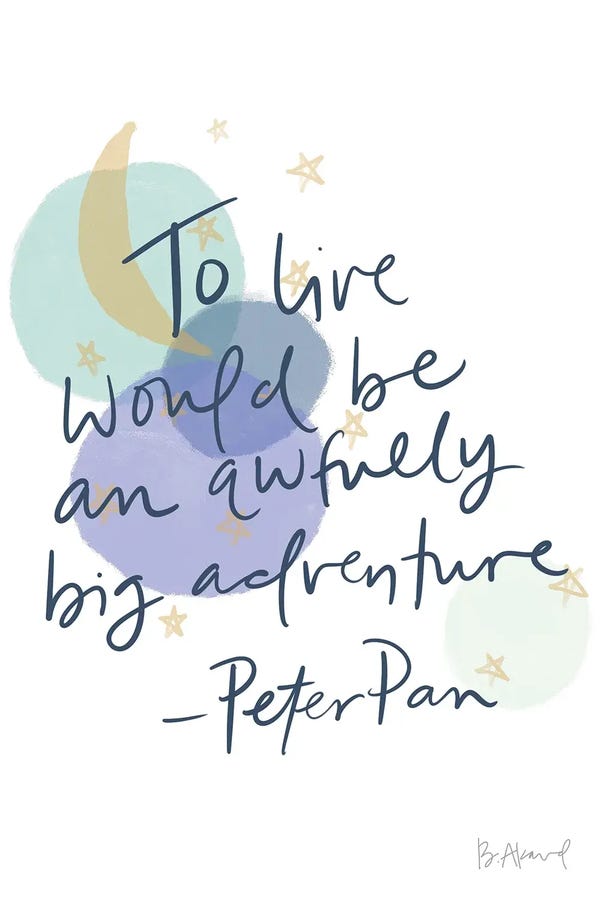 To live
would be
an awfully
big adventure
– Peter Pan